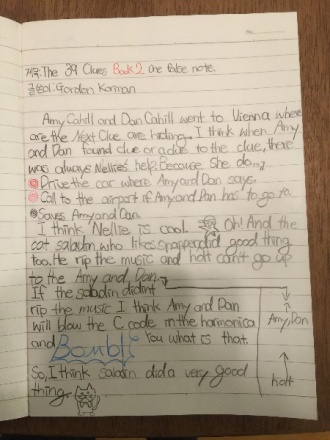 제목: The 39 Clues Book 2. One False note.
글쓴이: Gordon Korman
Amy Cahill and Dan Cahill went to Vienna where
are the Next Clue are hiding. I think when Amy
and Dan found clue or a to the clue, there
was always Nellie's help. Because She do...,
Drive the car where Amy and Dan says.
Call to the airport if Amy and Dan has to go
Saves Amy and Dan.
I think Nellie is cool. Oh! And the
cat saladin, who likes snapper did good thing
too. He rip the music and holt can't go up
to the Amy and Dan.
If the saladin didint
rip the music I think Amy and Dan
will blow the C code in the harmonica
and Bomb!! You what is that.
So, I think saladin did a very good
thing.
Amy, Dan
holt